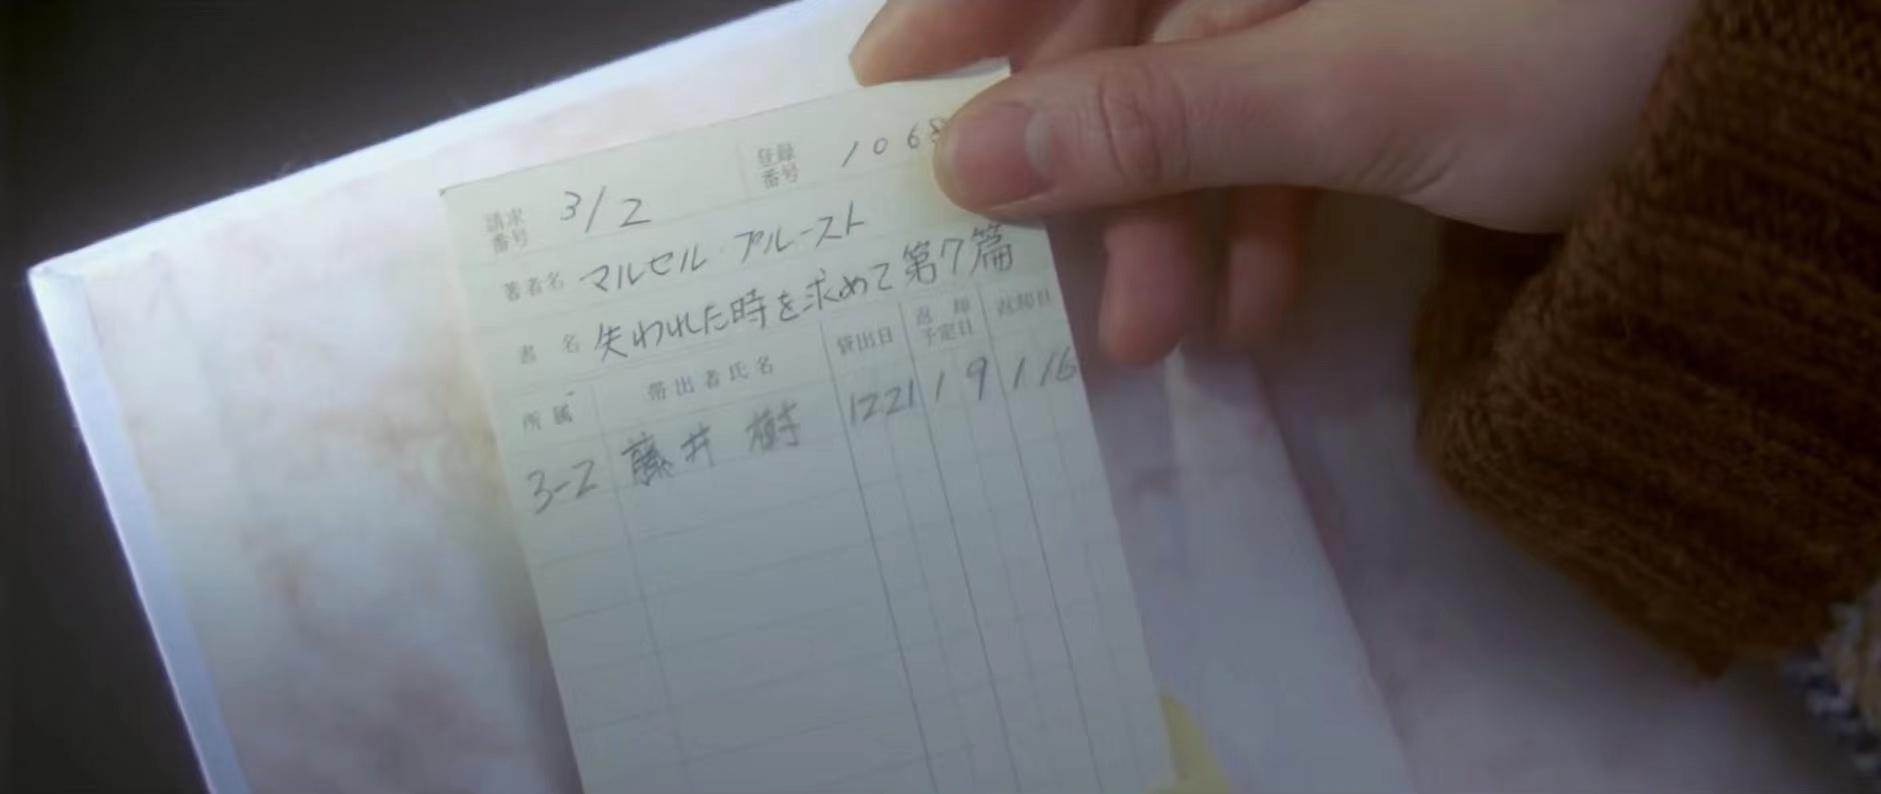 請求番号 3/2 登録番号 1068
著者名 マルセル・プルースト
書名 失われた時を求めて第7篇
所属 帯出者氏名 貸出日 返却予定日 返却日
3-2 藤井 樹 12 21 1 9 1 16